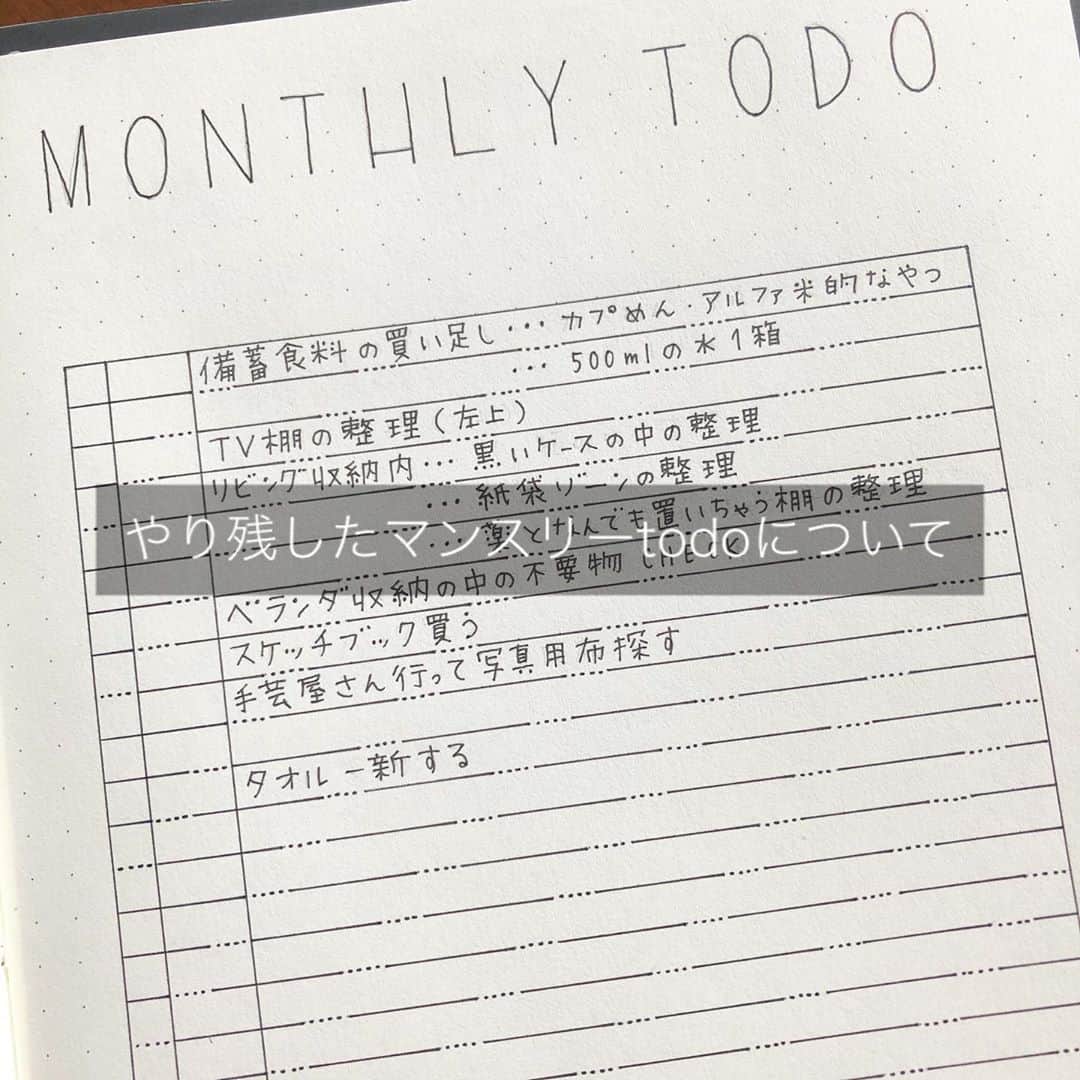 MONTHLY TODO
備蓄食料の買い足し… カプめん・アルファ米的なやつ
… 500mlの水1箱
TV棚の整理(左上)
リビング収納内… 黒いケースの中の整理
… 紙袋ゾーンの整理
… 薬となんでも置いちゃう棚の整理
やり残したマンスリーtodoについて
ベランダ収納の中の不要物 CHECK
スケッチブック買う
手芸屋さん行って写真用布探す
タオル一新する